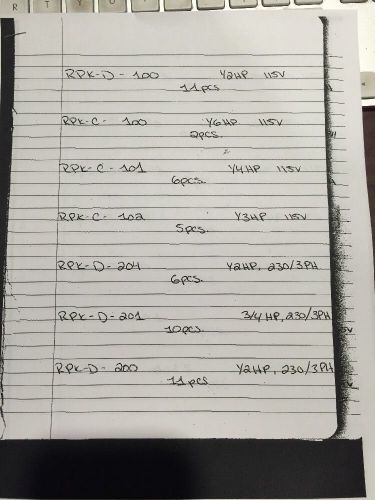 RPK-D-100 1/2HP 115V
11pcs
RPK-C-100 1/6HP 115V
2pcs.
RPK-C-101 1/4HP 115V
6pcs.
RPK-C-102 1/3HP 115V
5pcs.
RPK-D-204 1/2HP, 230/3PH
6pcs.
RPK-D-201 3/4HP, 230/3PH
10pcs.
RPK-D-200 1/2HP, 230/3PH
11pcs